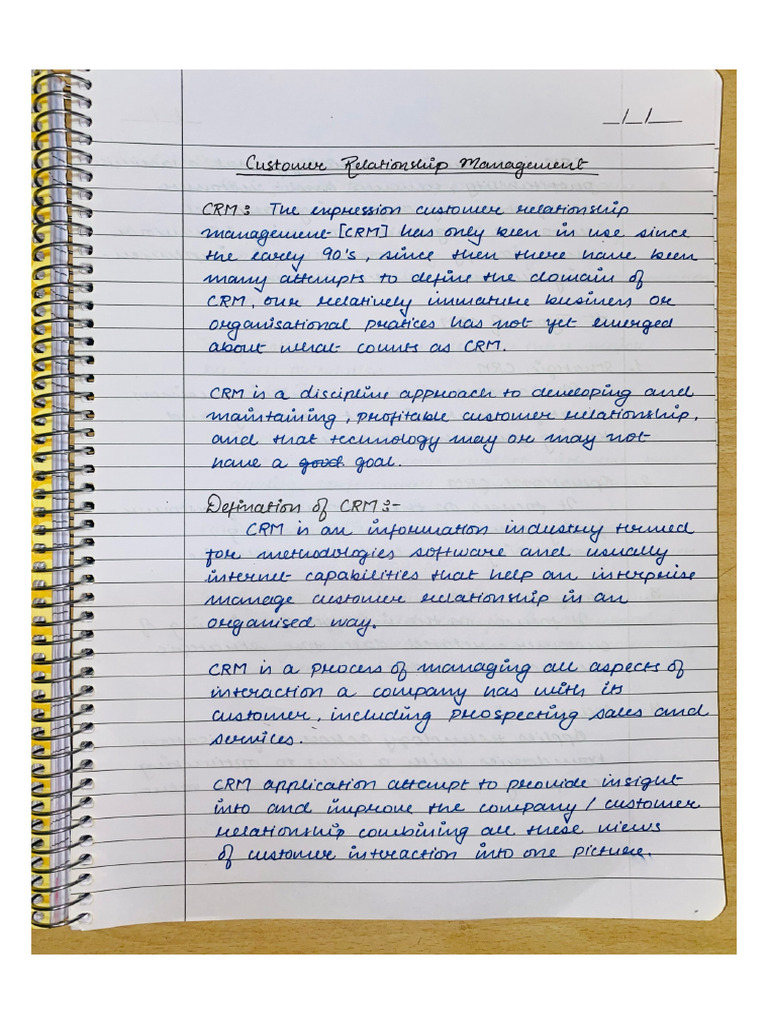 _/_/__
Customer Relationship Management
CRM: The expression customer relationship
management [CRM] has only been in use since
the early 90's, since then there have been
many attempts to define the domain of
CRM, our relatively immature business or
organisational pratices has not yet emerged
about what counts as CRM.
CRM is a discipline approach to developing and
maintaining, profitable customer relationship,
and that technology may or may not
have a good goal.
Defination of CRM:-
CRM is an information industry termed
for methodologies software and usually
internet capabilities that help an interprise
manage customer relationship in an
organised way.
CRM is a process of managing all aspects of
interaction a company has with its
customer, including prospecting sales and
services.
CRM application attempt to provide insight
into and improve the company / customer
relationship combining all these views
of customer interaction into one picture.